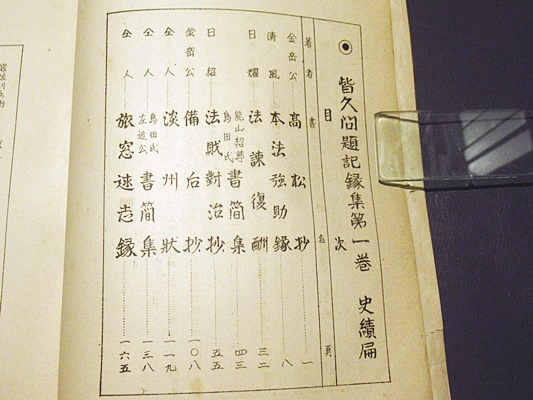 ◉ 皆久問題記録集第一巻 史績扁
目次
著者 書名 頁
金岳公 高松抄 一
清風 本法強助録 八
日耀 法諫復酬 三二
熊山紹尊 島田氏 書简集 四三
日紹 法賊對治抄 五五
金岳公 備后抄 一〇八
仝人 淡州状 一一九
仝人 島田氏 左近公 書简集 一三八
仝人 旅窓速志録 一六五